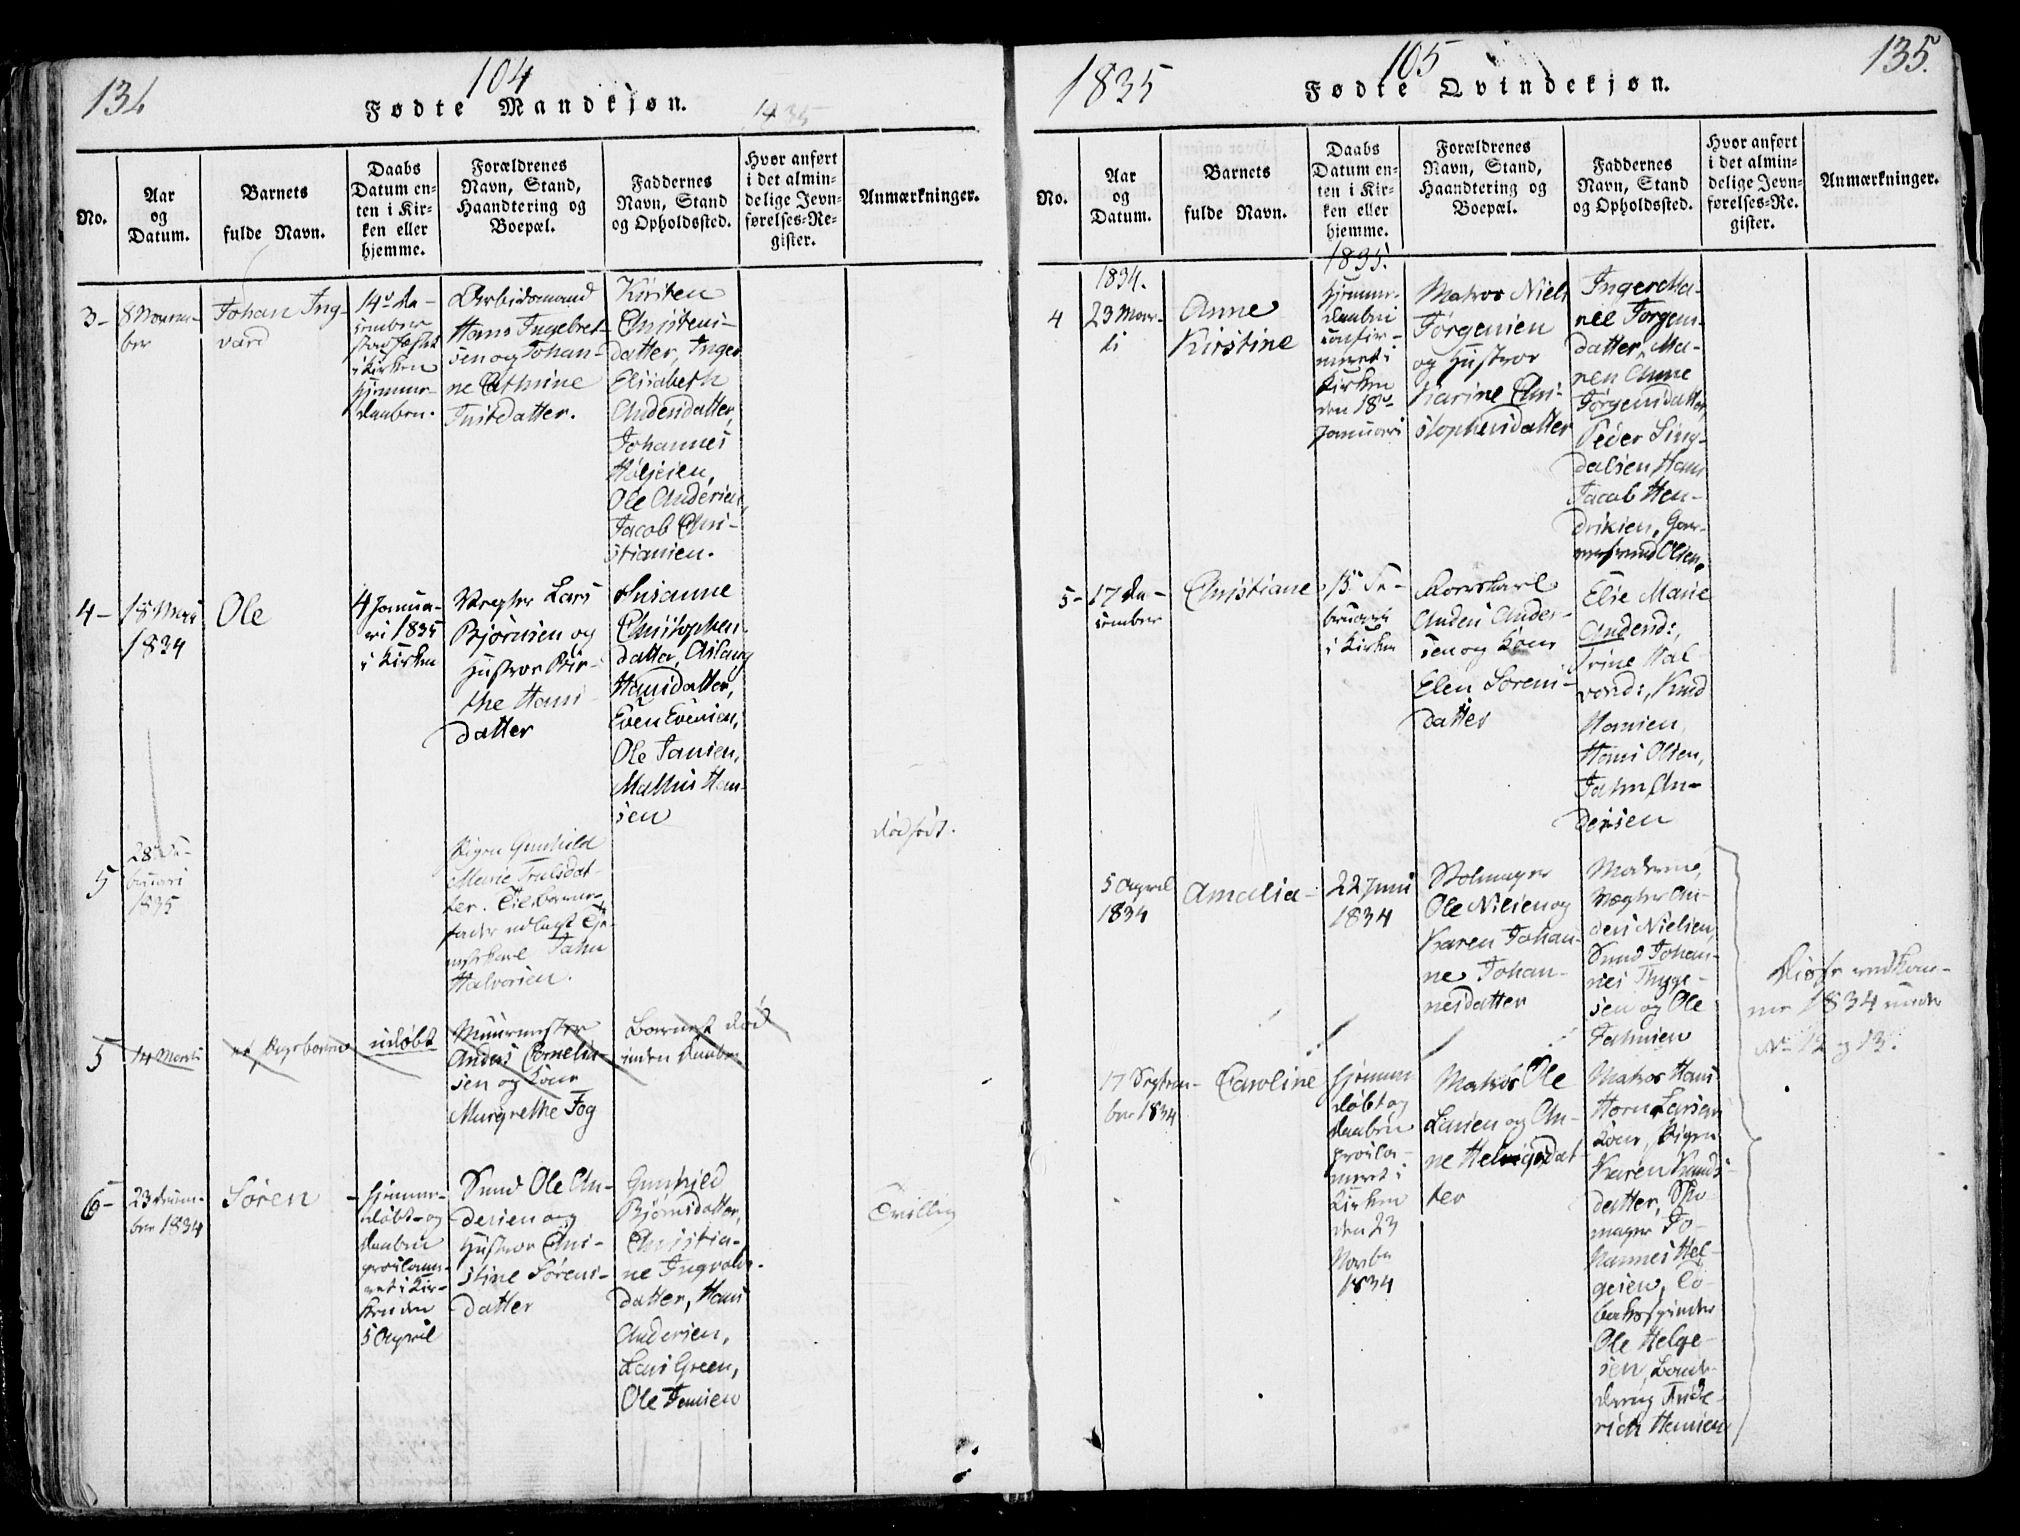 134
104
Fødte Mandkjøn.
1835
No.
Aar
og
Datum.
Barnets
fulde Navn.
Daabs
Datum en-
ten i Kir-
ken eller
hjemme.
Forældrenes
Navn, Stand,
Haandtering og
Boepæl.
Faddernes
Navn, Stand
og Opholdssted.
Hvor anført
i det almin-
delige Jevn-
førelses-Re-
gister.
Anmærkninger.
3-
8 Novem-
ber
Johan Ing-
vard
14de De-
cember
i Kirken
Hjemme-
daaben.
Arbeidsmand
Hans Ingebret-
sen og Johan-
ne Cathrine
Kirsten
Christens-
datter, Inger
Elisabeth
Andersdatter,
Johannes
Ole Andersen,
Jacob Chri-
stiansen.
4-
18 Mai
1834
Ole
4 Janua-
ri 1835
i Kirken
Vægter Lars
Bjørnsen og
Hustroe Bir-
the Hans-
datter
Susanne
Christophers-
datter, Aslaug
Hansdatter,
Even Evensen,
Ole Jansen,
Mathis Han-
sen
5
28 Fe-
bruari
1835
Pigen Gunhild
Marie Trulsdat-
ter. Til Barne-
fader udlagt Tje-
nestkarl John
Halvorsen.
dødfødt.
5
14 Marts
et Pigebarn
udøbt
Muurmester
Anders Corneliu-
sen og Kone
Margrethe Fog
Barnet død
inden Daaben
6-
23 Decem-
ber 1834
Søren
hjemme-
døbt og
Daaben
proclame-
ret i Kir-
ken den
5 April
Smed Ole An-
dersen og
Hustroe Chri-
stine Sørens-
datter
Gunhild
Bjørnsdatter,
Christia-
ne Ingvolds-
datter, Hans
Andersen,
Lars Green,
Ole Jensen
Tvilling
1835
105
Fødte Qvindekjøn.
135.
No.
Aar
og
Datum.
Barnets
fulde Navn.
Daabs
Datum en-
ten i Kir-
ken eller
hjemme.
Forældrenes
Navn, Stand,
Haandtering og
Boepæl.
Faddernes
Navn, Stand
og Opholdssted.
Hvor anført
i det almin-
delige Jevn-
førelses-Re-
gister.
Anmærkninger.
4
1834.
23 Mar-
ti
Anne
Kirstine
1835.
Hjemme-
daaben
confir-
meret i
Kirken
den 18de
Januari
Matros Niels
Jørgensen
og Hustroe
Karine Chri-
stophersdatter
Inger Ma-
rie Jørgens-
datter, Ma-
ren Anne
Jørgensdatter,
Peder Ling-
dalsen, Hans
Jacob Hen-
driksen,
Olsen
5-
17 De-
cember
Christiane
15 Fe-
bruari
i Kirken
Anders Ander-
sen og Kone
Elen Sørens-
datter
Else Marie
Andersd:,
Trine Hal-
vorsd:, Knud
Hansen,
Hans Olsen,
John An-
dersen
5 April
1834
Amalia
22 Juni
1834
Stolmager
Ole Nilsen og
Karen Johan-
ne Johan-
nesdatter
Moderen,
Vægter An-
ders Nielsen,
Smed Johan-
nes Thyge-
sen og Ole
Johnsen
Disse vedkom-
mer 1834 under
No 12 og 13.
17 Septem-
ber 1834
Caroline
hjemme-
døbt og
Daaben
procla-
meret i
Kirken
den 23
Novbr
1834
Matros Ole
Larsen og An-
ne Helvigsdat-
ter
Matros Hans
Horn Larsens
Kone, Pigen
Karen Knuds-
datter, Sko-
mager Jo-
hannes Hel-
gesen, To-
baksspinder
Ole Helge-
sen,
Frede-
rich Hansen